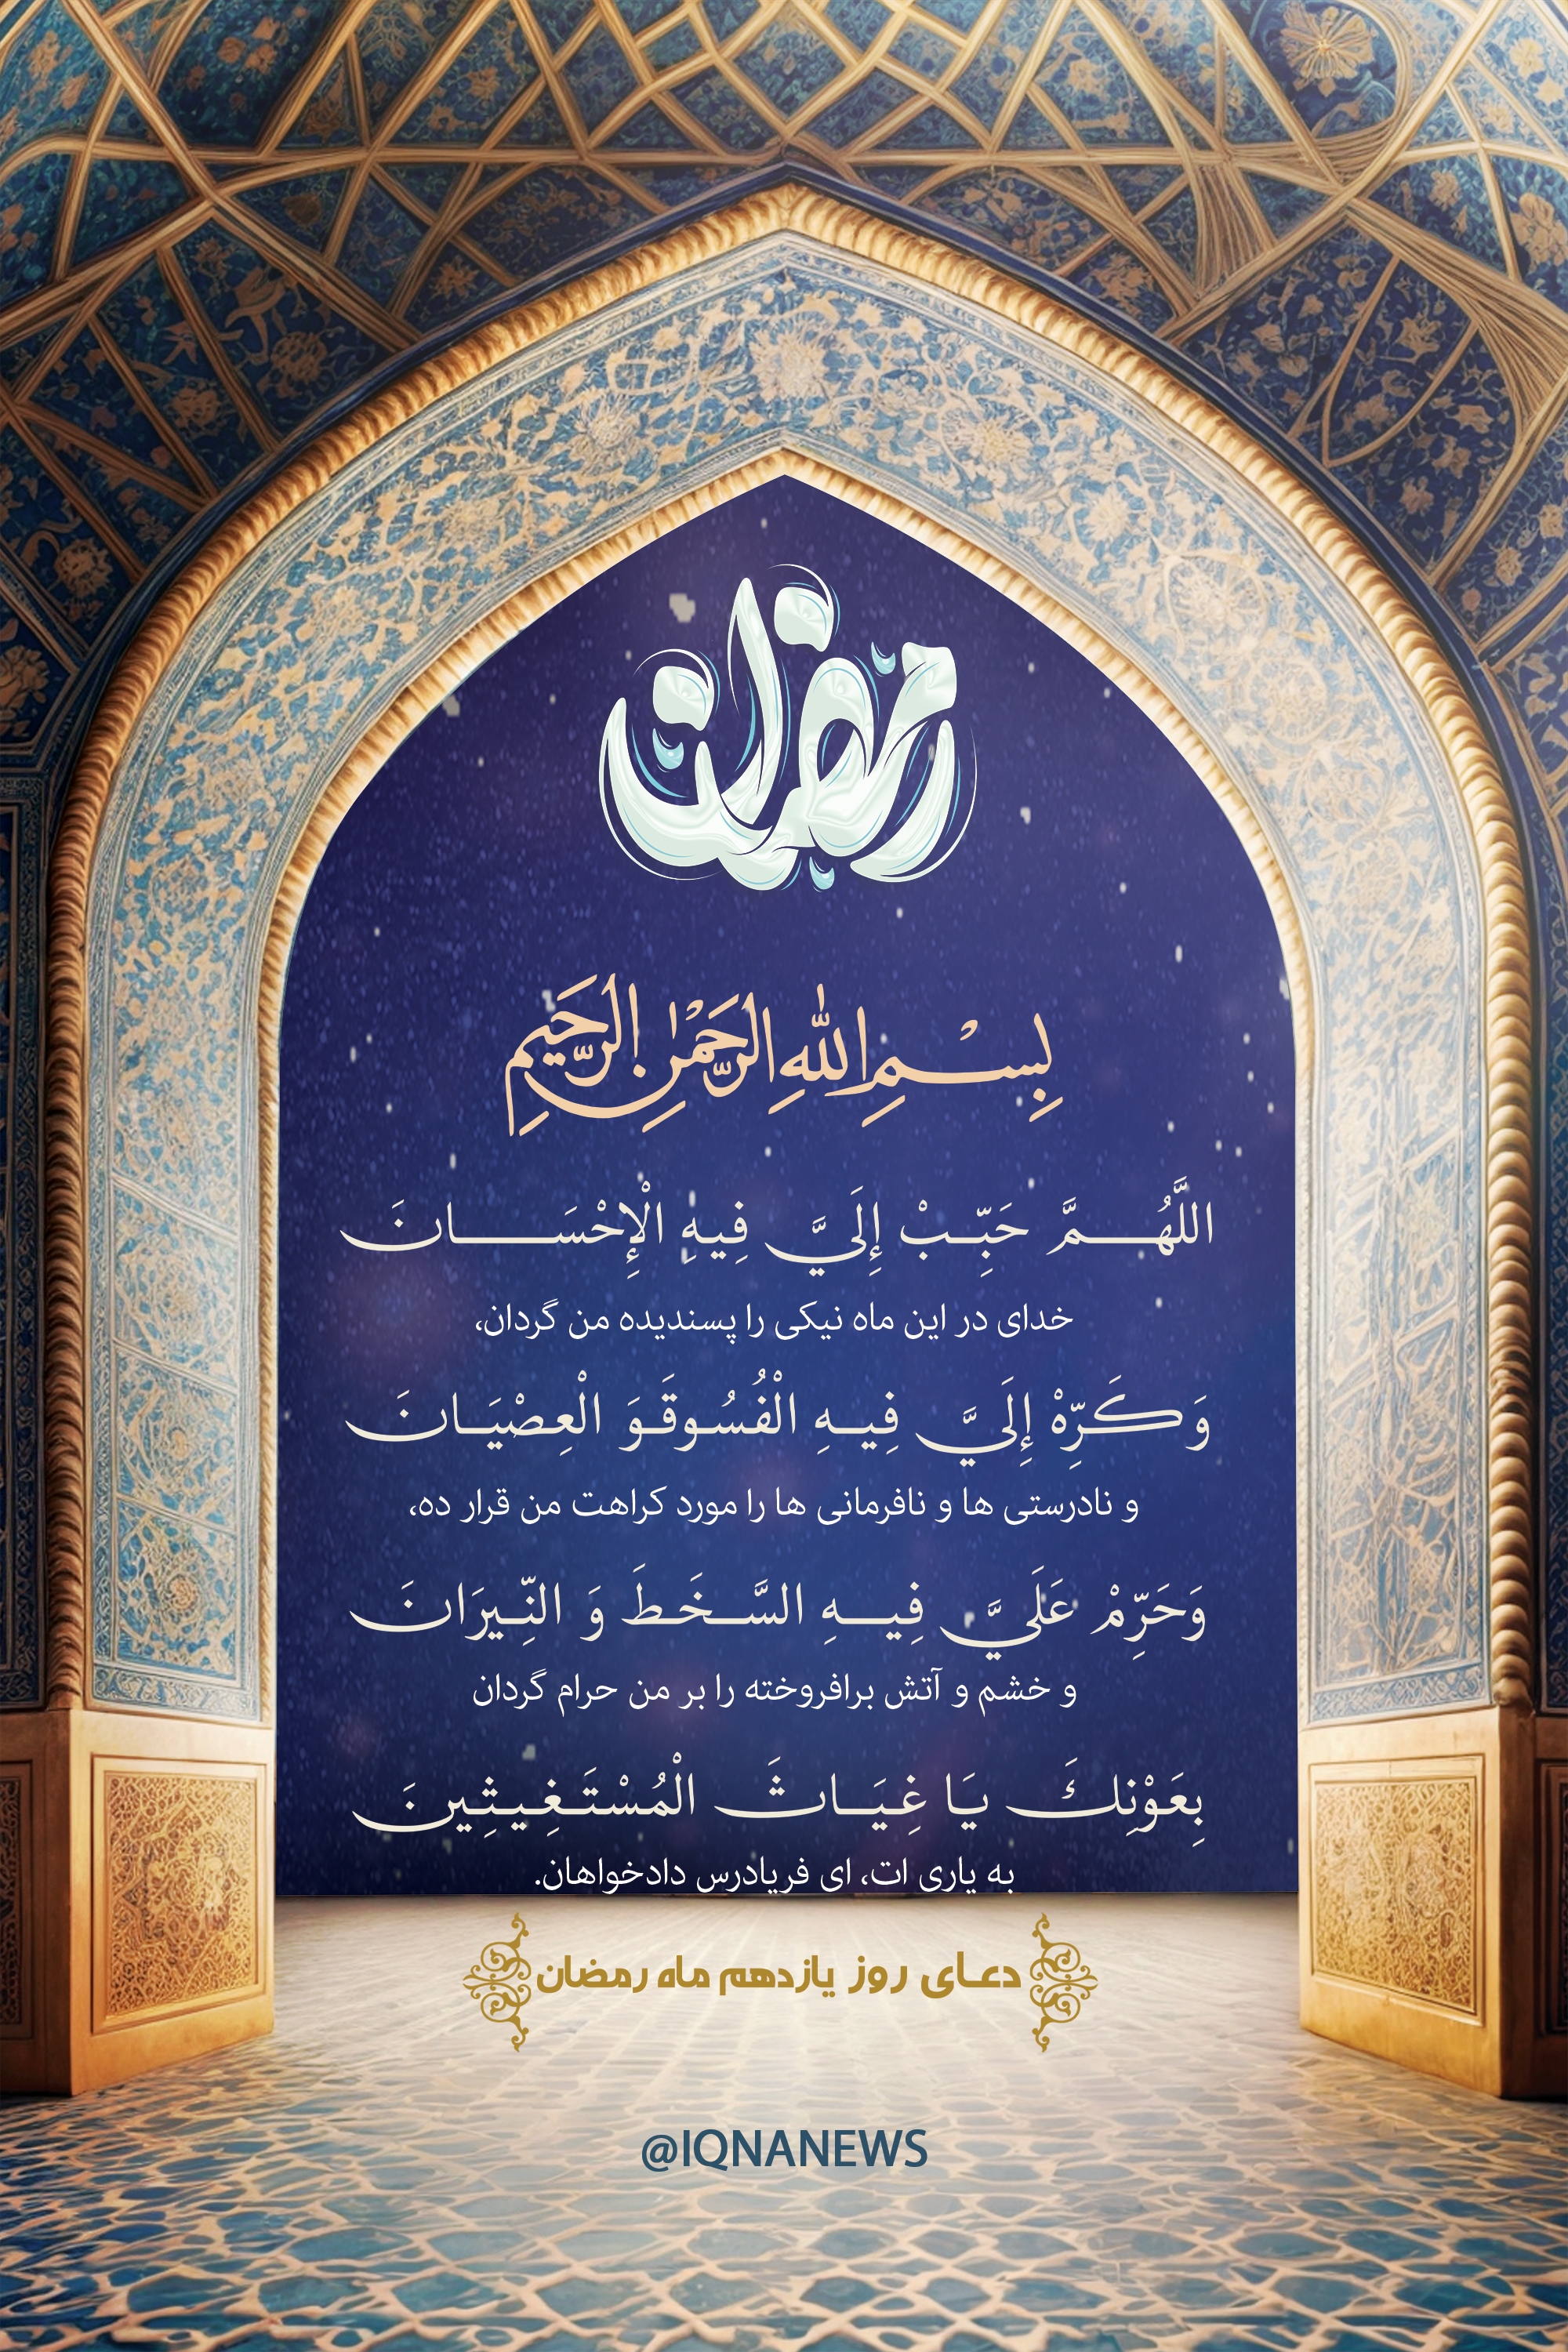 رمضان
بِسْمِ اللهِ الرَّحْمٰنِ الرَّحِيمِ
اللَّهُمَّ حَبِّبْ إِلَيَّ فِيهِ الْإِحْسَانَ
خدای در این ماه نیکی را پسندیده من گردان،
وَكَرِّهْ إِلَيَّ فِيهِ الْفُسُوقَوَ الْعِصْيَانَ
و نادرستی ها و نافرمانی ها را مورد کراهت من قرار ده،
وَحَرِّمْ عَلَيَّ فِيهِ السَّخَطَ وَ النِّيرَانَ
و خشم و آتش برافروخته را بر من حرام گردان
بِعَوْنِكَ يَا غِيَاثَ الْمُسْتَغِيثِينَ
به یاری ات، ای فریادرس دادخواهان.
دعای روز یازدهم ماه رمضان
@IQNANEWS